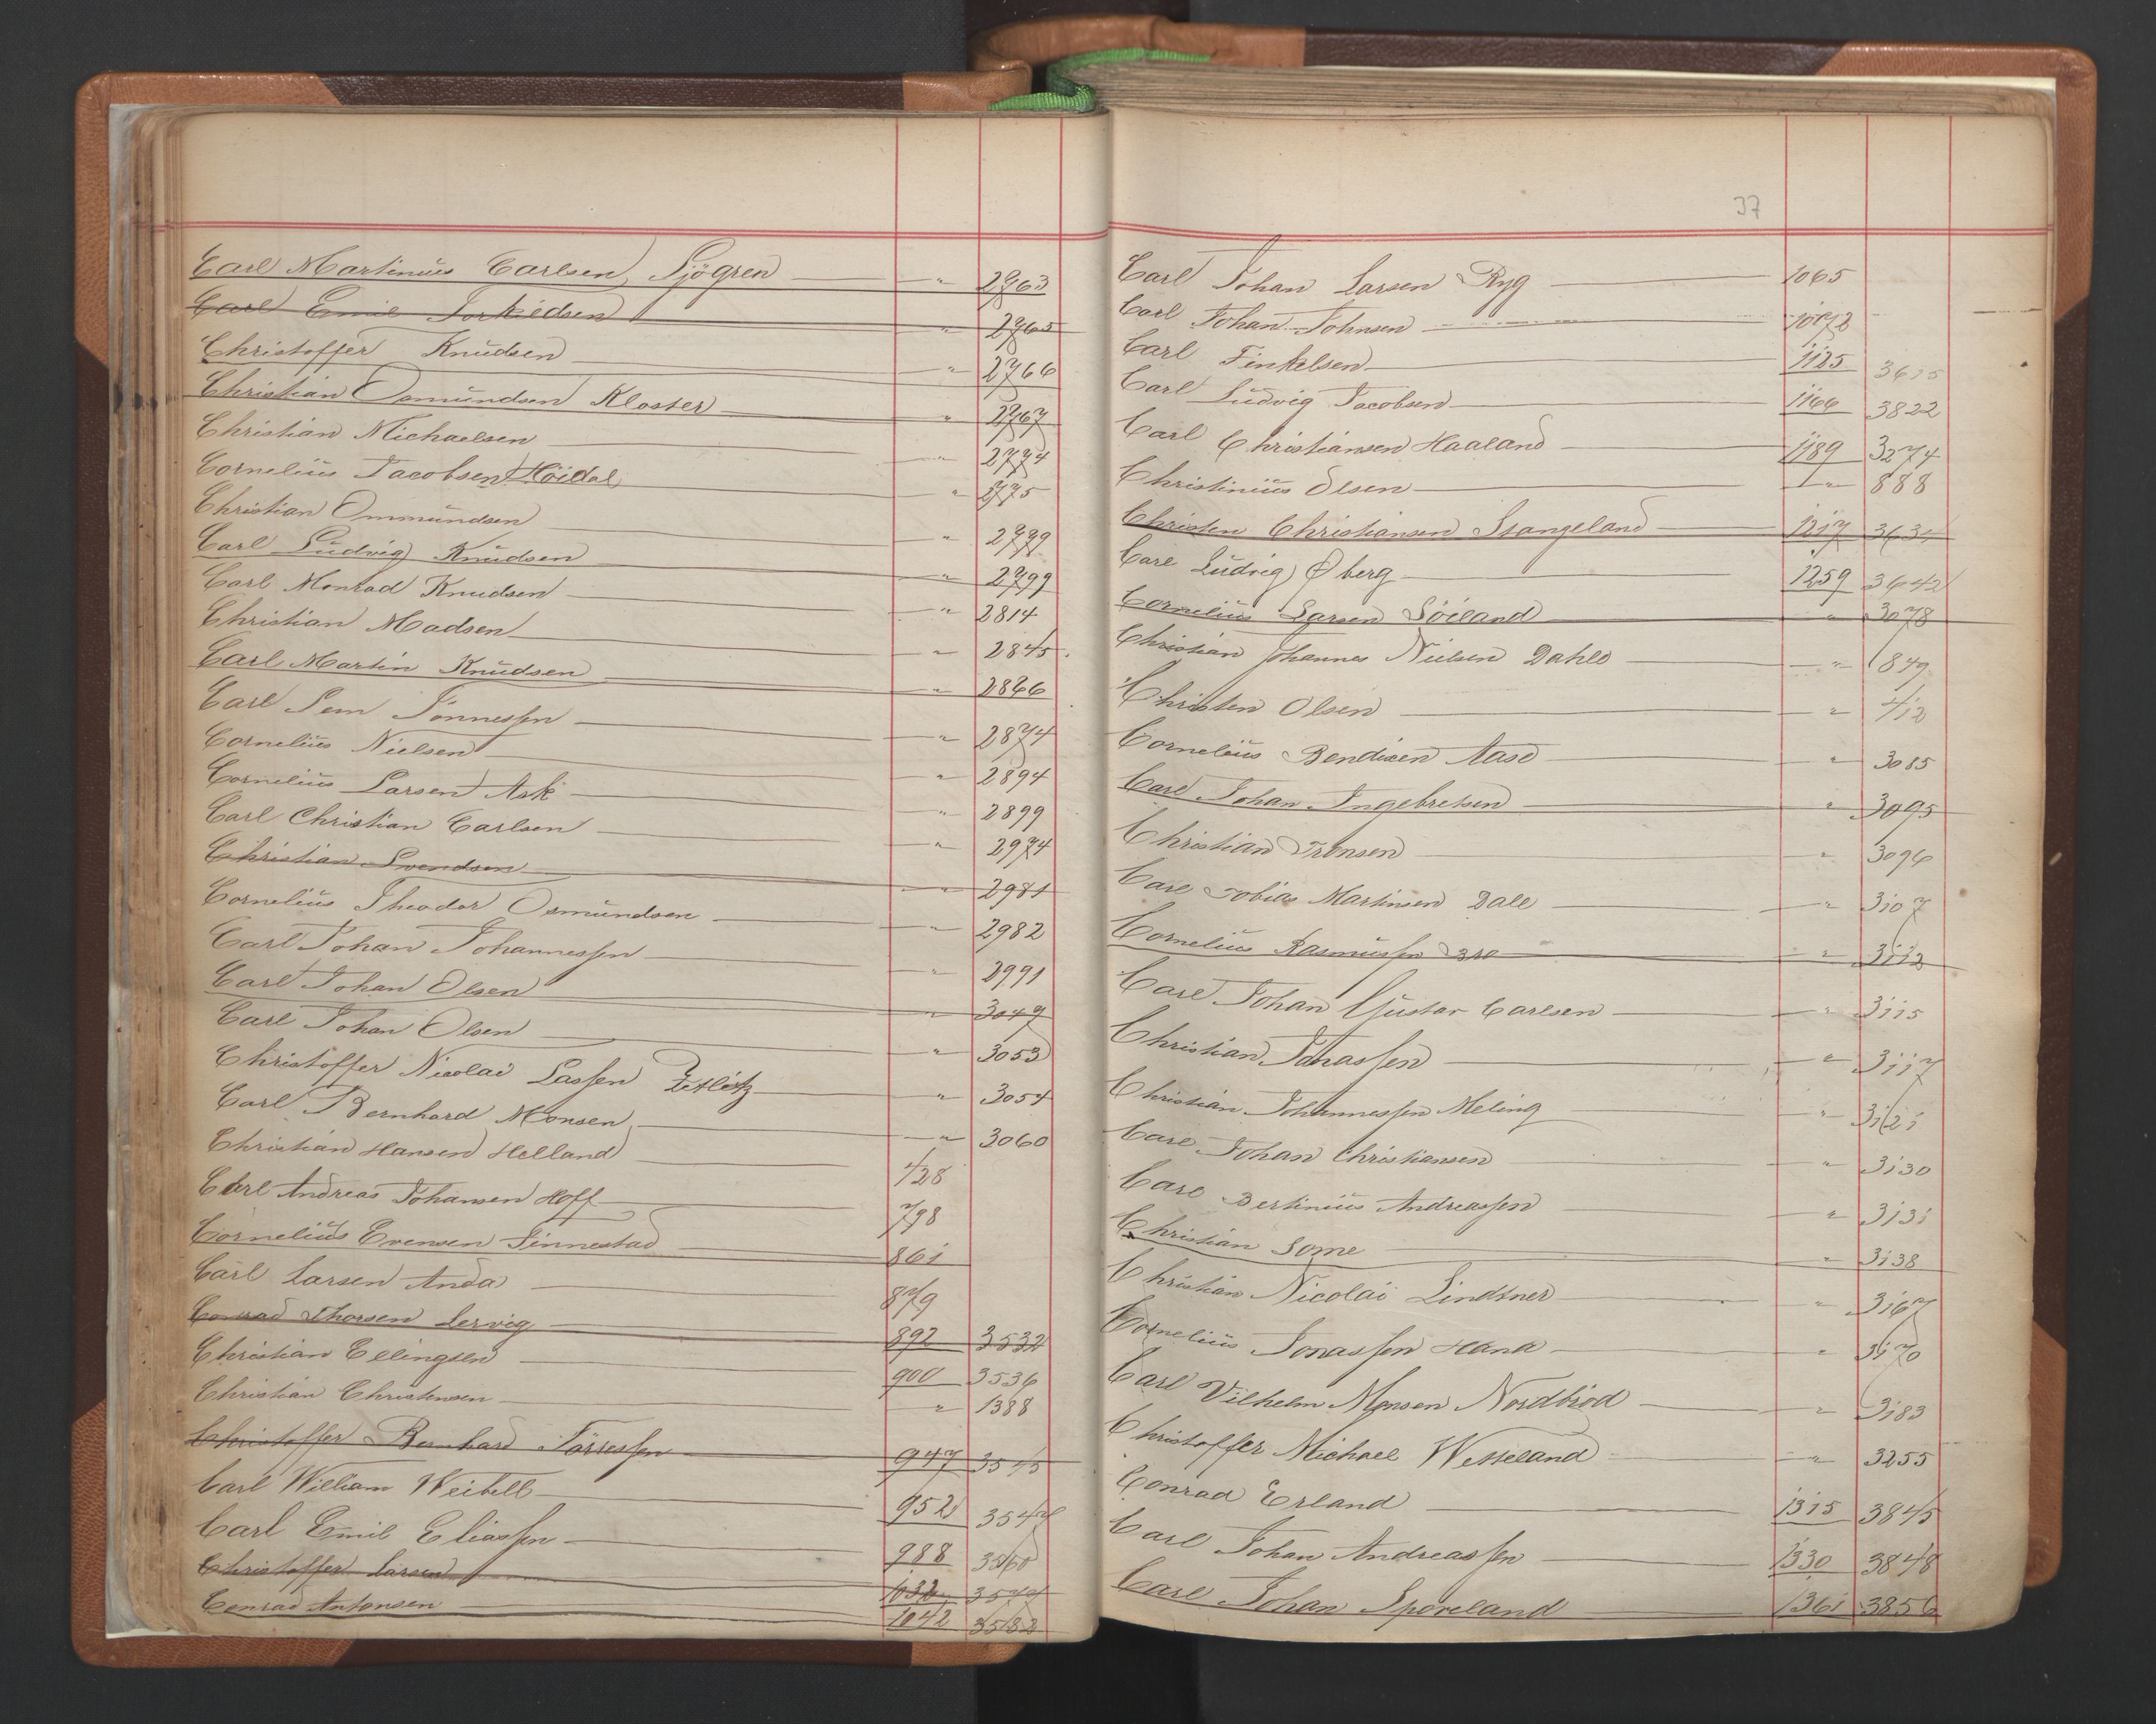 Carl Martinius Carlsen Sjögren — " 2963
Carl Emil Torkildsen — " 2965
Christoffer Knudsen — " 2766
Christian Osmundsen Kloster — " 2767
Christian Michaelsen — " 2774
Cornelius Jacobsen Höidal — " 2775
Christian Ommundsen — " 2779
Carl Ludvig Knudsen — " 2799
Carl Monrad Knudsen — " 2814
Christian Madsen — " 2845
Carl Martin Knudsen — " 2866
Carl Sem Tönnessen — " 2874
Cornelius Nielsen — " 2894
Cornelius Larsen Ask — " 2899
Carl Christian Carlsen — " 2974
Christian Svendsen — " 2981
Cornelius Theodor Osmundsen — " 2982
Carl Johan Johannessen — " 2991
Carl Johan Olsen — " 3049
Carl Johan Olsen — " 3053
Christoffer Nicolai Lassen Zetlitz — " 3054
Carl Bernhard Monsen — " 3060
Christian Hansen Helland — 428
Carl Andreas Johansen Hoff — 798
Cornelius Evensen Sinnestad — 861
Carl Larsen Anda — 879
Conrad Thorsen Lervig — 892 3532
Christian Ellingsen — 900 3536
Christian Christensen — " 1388
Christoffer Bernhard Törressen — 947 3545
Carl William Weibell — 952 3547
Carl Emil Eliassen — 988 3560
Christoffer Larsen — 1032 3574
Conrad Antonsen — 1042 3582
37
Carl Johan Larsen Ryg — 1065
Carl Johan Johnsen — 1072
Carl Finkelsen — 1125 3615
Carl Ludvig Jacobsen — 1166 3822
Carl Christiansen Haaland — 1189 3274
Christinius Olsen — " 888
Christen Christiansen Stangeland — 1217 3634
Carl Ludvig Öberg — 1259 3642
Cornelius Larsen Söiland — " 3078
Christian Johannes Nielsen Dahle — " 849
Christen Olsen — " 412
Cornelius Bendixen Aase — " 3085
Carl Johan Ingebretsen — " 3095
Christian Tronsen — " 3096
Carl Tobias Martinsen Dale — " 3107
Cornelius Rasmussen Bro — " 3112
Carl Johan Gustav Carlsen — " 3115
Christian Jonassen — " 3117
Christian Johannessen Meling — " 3121
Carl Johan Christiansen — " 3130
Carl Bertinius Andreassen — " 3131
Christian Some — " 3138
Christian Nicolai Lindtner — " 3167
Cornelius Jonassen Hana — " 3170
Carl Vilhelm Monsen Nordbröd — " 3183
Christoffer Michael Wesseland — " 3255
Conrad Erland — 1315 3845
Carl Johan Andreassen — 1330 3848
Carl Johan Sporeland — 1361 3856